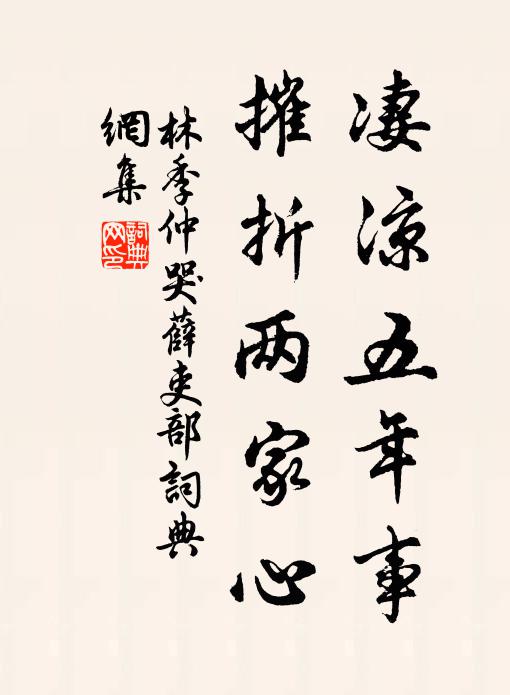 凄凉五年事
摧折两家心
林季仲哭薛吏部詞典
網集
詞典
网印